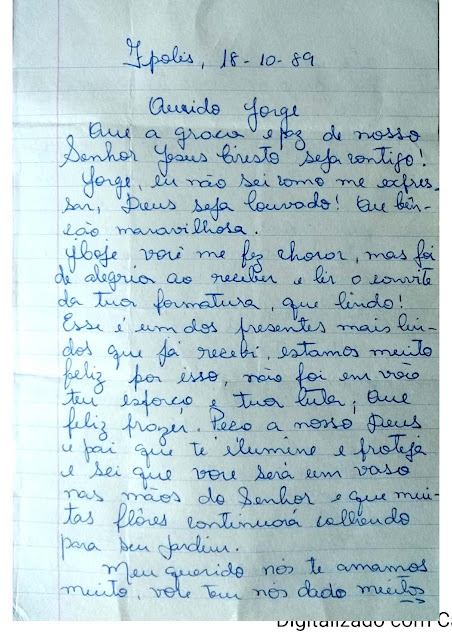 Fpolis, 18-10-89
Querido Jorge
Que a graça e paz de nosso
Senhor Jesus Cristo seja contigo!
Jorge, eu não sei como me expres-
sar, Deus seja louvado! Que bên-
ção maravilhosa.
Hoje você me fez chorar, mas foi
de alegria ao receber e ler o convite
da tua formatura, que lindo!
Esse é um dos presentes mais lin-
dos que já recebi, estamos muito
feliz por isso, não foi em vão
teu esforço e tua luta, que
feliz prazer. Peço a nosso Deus
e pai que te ilumine e proteja
e sei que você será um vaso
nas mãos do Senhor e que mui-
tas flôres continuará colhendo
para seu jardim.
Meu querido nós te amamos
muito, você tem nós dado muitos
Digitalizado com Ca